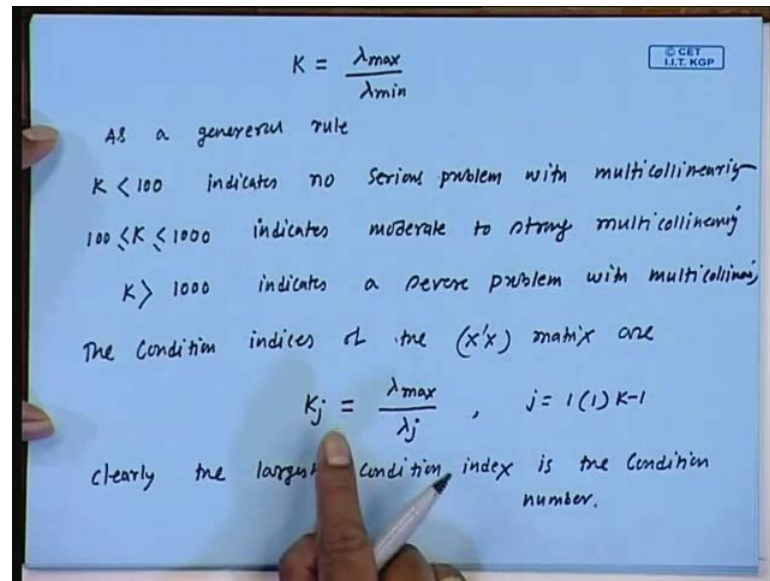 K = λmax / λmin
© CET
I.I.T. KGP
As a genererul rule
K < 100 indicates no serious problem with multicollinearity
100 ≤ K ≤ 1000 indicates moderate to strong multicollinearity
K > 1000 indicates a severe problem with multicollinearity
The Condition indices of the (x'x) matrix are
Kj = λmax / λj , j = 1(1) K-1
clearly the largest condition index is the Condition
number.